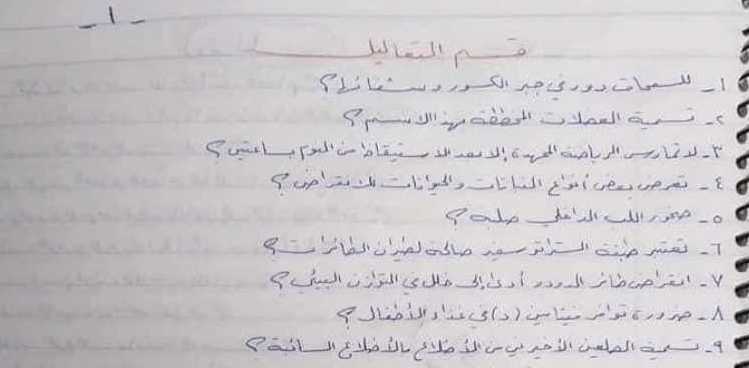 -١-
قسم التعاليل
١- للسمحاق دور في جبر الكسور وشفائها؟
٢- تسمية العضلات المخططة بهذا الاسم؟
٣- لا تمارس الرياضة المجهدة إلا بعد الاستيقاظ من النوم بساعتين؟
٤- تعرض بعض أنواع النباتات والحيوانات للانقراض؟
٥- صخور اللب الداخلي صلبة؟
٦- تعتبر طبقة الستراتوسفير صالحة لطيران الطائرات؟
٧- انقراض طائر الدودو أدى إلى خلل في التوازن البيئي؟
٨- ضرورة توافر فيتامين (د) في غذاء الأطفال؟
٩- تسمية الضلعين الأخيرين من الأضلاع بالأضلاع السائبة؟